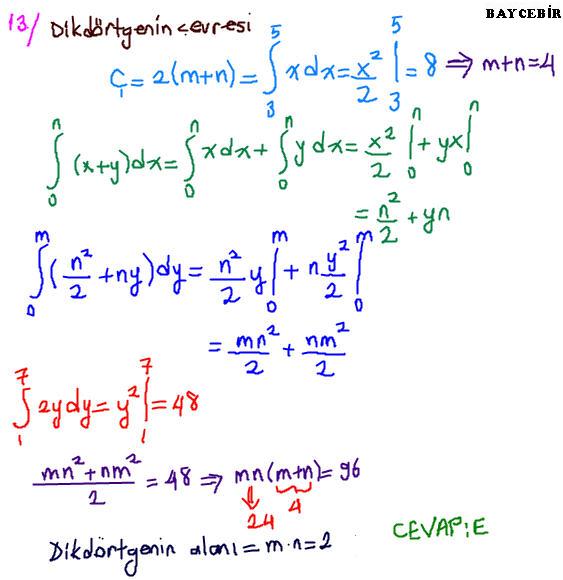 BAYCEBİR
13/ Dikdörtgenin çevresi
Ç = 2(m+n) = ∫₃⁵ x dx = x²/2 |₃⁵ = 8 ⇒ m+n = 4
∫₀ⁿ (x+y)dx = ∫₀ⁿ x dx + ∫₀ⁿ y dx = x²/2 |₀ⁿ + yx |₀ⁿ
= n²/2 + yn
∫₀ᵐ (n²/2 + ny)dy = n²/2 y |₀ᵐ + n y²/2 |₀ᵐ
= mn²/2 + nm²/2
∫₁⁷ 2y dy = y² |₁⁷ = 48
(mn²+nm²)/2 = 48 ⇒ mn(m+n) = 96
24 4
Dikdörtgenin alanı = m·n = 2
CEVAP:E